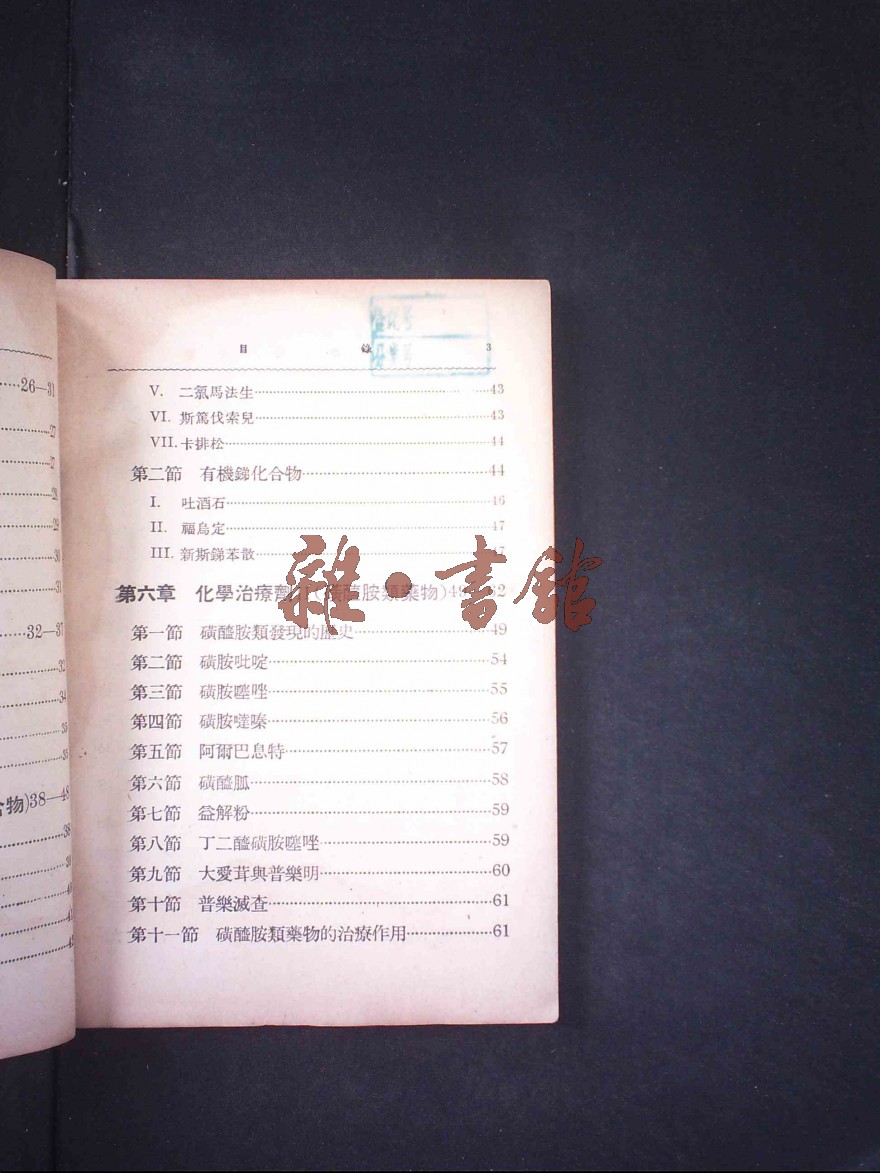 26—31
27
27
28
29
30
31
32—37
32
34
35
35
合物)38—48
38
39
40
41
42
登記號
目 錄 3
V. 二氯馬法生 43
VI. 斯篤伐索兒 43
VII. 卡排松 44
第二節 有機銻化合物 44
I. 吐酒石 46
II. 福烏定 47
III. 新斯銻苯散 47
雜·書館
第六章 化學治療劑II(磺醯胺類藥物)49—62
第一節 磺醯胺類發現的歷史 49
第二節 磺胺吡啶 54
第三節 磺胺噻唑 55
第四節 磺胺噠嗪 56
第五節 阿爾巴息特 57
第六節 磺醯胍 58
第七節 益解粉 59
第八節 丁二醯磺胺噻唑 59
第九節 大愛茸與普樂明 60
第十節 普樂滅查 61
第十一節 磺醯胺類藥物的治療作用 61